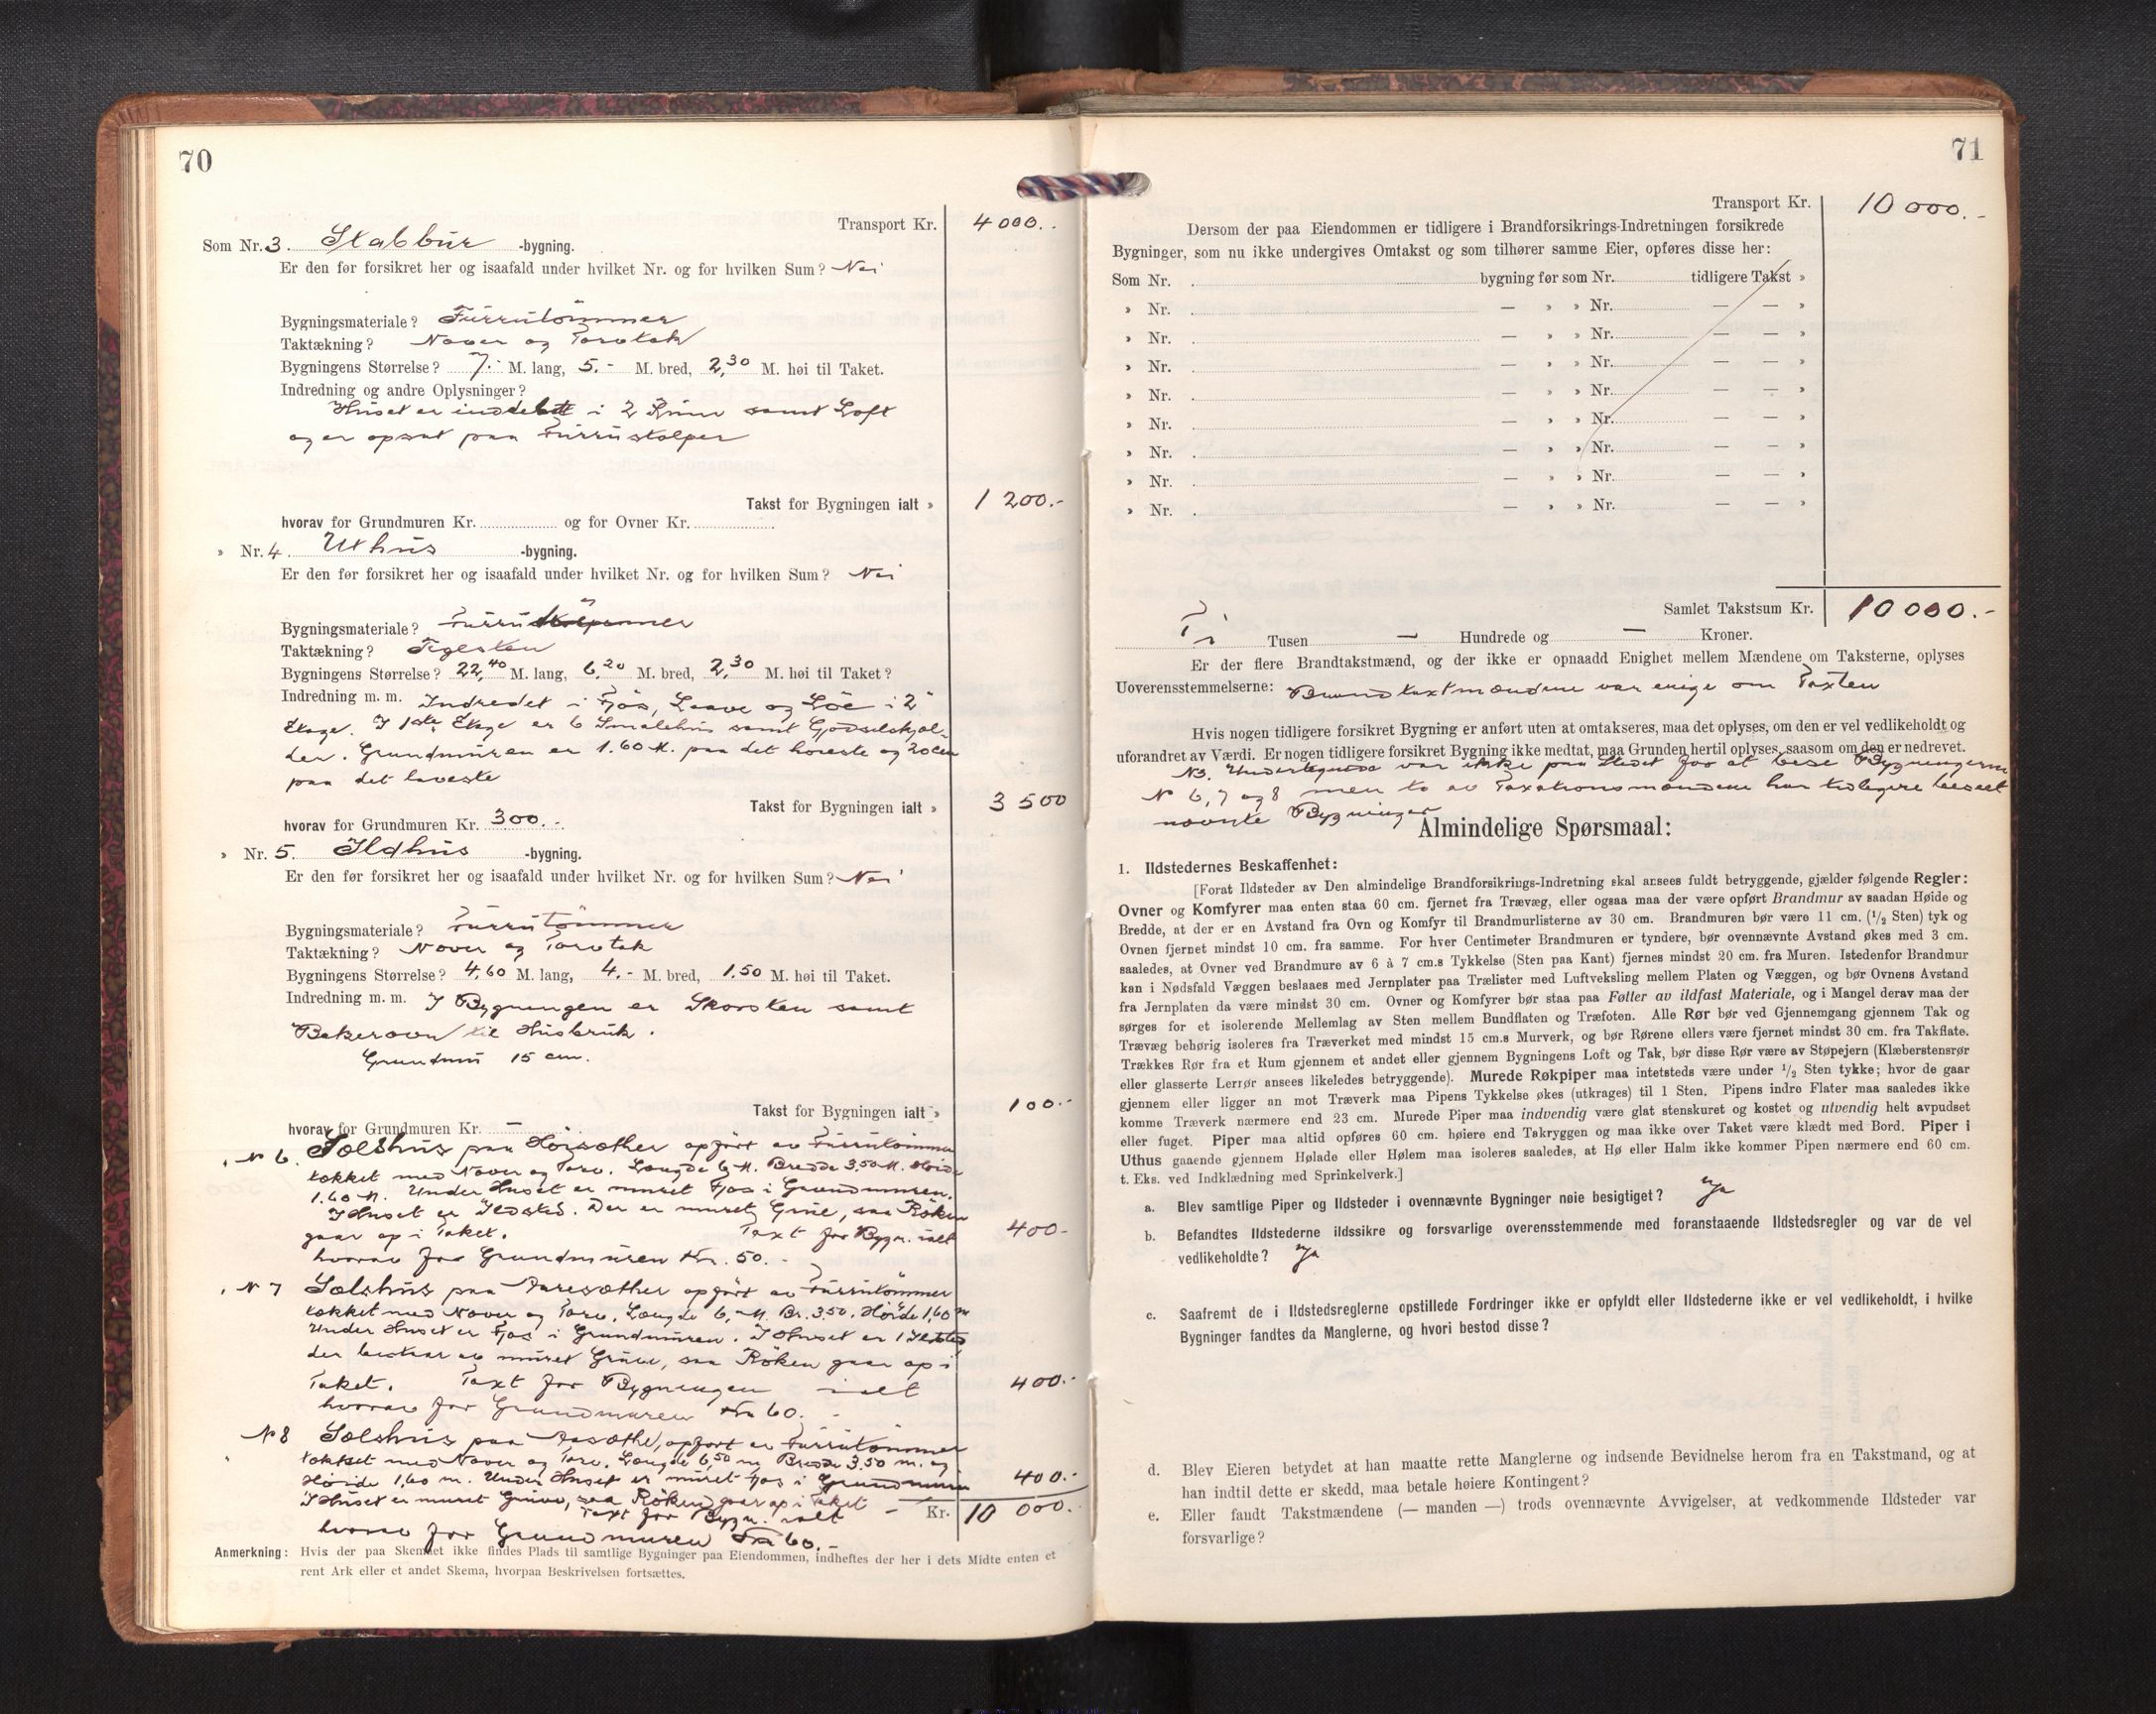 70
Transport Kr. 4000.-
Som Nr. 3. Stabbur -bygning.
Er den før forsikret her og isaafald under hvilket Nr. og for hvilken Sum? Nei
Bygningsmateriale? Furrutömmer
Taktækning? Næver og Torvtak
Bygningens Størrelse? 7.- M. lang, 5.- M. bred, 2,30 M. høi til Taket.
Indredning og andre Oplysninger?
Huset er inddelt i 2 Rum samt Loft
og er opsat paa Furrustolper
Takst for Bygningen ialt » 1 200.-
hvorav for Grundmuren Kr. og for Ovner Kr.
» Nr. 4. Uthus -bygning.
Er den før forsikret her og isaafald under hvilket Nr. og for hvilken Sum? Nei
Bygningsmateriale? Furrutömmer
Taktækning? Teglsten
Bygningens Størrelse? 22,40 M. lang, 6,20 M. bred, 2,30 M. høi til Taket?
Indredning m. m. Indredet i Fjös, Laave og Löe i 2
Etage. I 1ste Etage er 6 Smalehus samt Gjödselskjæl-
der. Grundmuren er 1.60 M. paa det höieste og 20 cm
paa det laveste
Takst for Bygningen ialt » 3 500
hvorav for Grundmuren Kr. 300.-
» Nr. 5. Ildhus -bygning.
Er den før forsikret her og isaafald under hvilket Nr. og for hvilken Sum? Nei
Bygningsmateriale? Furrutömmer
Taktækning? Næver og Torvtak
Bygningens Størrelse? 4,60 M. lang, 4.- M. bred, 1.50 M. høi til Taket.
Indredning m. m. I Bygningen er Skorsten samt
Bakerovn til Husbruk.
Grundmur 15 cm.
Takst for Bygningen ialt » 100.-
hvorav for Grundmuren Kr. —
N 6. Sælshus paa opfört av Furrutömmer
tækket med Næver og Torv. Længde 6 M. Bredde 3.50 M. Höide
1.60 M. Under Huset er muret Fjös i Grundmuren.
I Huset er Ildsted. Der er muret Grue, saa Röken
gaar op i Taket. Taxt for Bygn. ialt 400-
hvorav for Grundmuren Kr. 50.-
N 7 Sælshus paa opfört av Furrutömmer
tækket med Næver og Torv. Længde 6,- M. Br. 3.50. Höide 1,60 m
Under Huset er Fjös i Grundmuren. I Huset er 1 Ildsted,
der bestaar av muret Grue, saa Röken gaar op i
Taket. Taxt for Bygningen ialt 400.-
hvorav for Grundmuren Kr 60.-
N 8 Sælshus paa opfört av Furrutömmer
tækket med Næver og Torv. Længde 6,50 m, Bredde 3.50 m. og
Höide 1,60 m. Under Huset er muret Fjös i Grundmuren 400.-
I Huset er muret Grue, saa Röken gaar op i Taket
Taxt for Bygn. ialt - Kr. 10 000.-
hvorav for Grundmuren Kr 60.-
Anmerkning: Hvis der paa Skemaet ikke findes Plads til samtlige Bygninger paa Eiendommen, indheftes der her i dets Midte enten et
rent Ark eller et andet Skema, hvorpaa Beskrivelsen fortsættes.
71
Transport Kr. 10 000.-
Dersom der paa Eiendommen er tidligere i Brandforsikrings-Indretningen forsikrede
Bygninger, som nu ikke undergives Omtakst og som tilhører samme Eier, opføres disse her:
Som Nr. bygning før som Nr. tidligere Takst »
» Nr. — » » Nr. — — »
» Nr. — » » Nr. — — »
» Nr. — » » Nr. — — »
» Nr. — » » Nr. — — »
» Nr. — » » Nr. — — »
» Nr. — » » Nr. — — »
» Nr. — » » Nr. — — »
» Nr. — » » Nr. — — »
Samlet Takstsum Kr. 10 000.-
Ti Tusen — Hundrede og — Kroner.
Er der flere Brandtakstmænd, og der ikke er opnaadd Enighet mellem Mændene om Taksterne, oplyses
Uoverensstemmelserne: Brandtaxtmændene var enige om Taxten
Hvis nogen tidligere forsikret Bygning er anført uten at omtakseres, maa det oplyses, om den er vel vedlikeholdt og
uforandret av Værdi. Er nogen tidligere forsikret Bygning ikke medtat, maa Grunden hertil oplyses, saasom om den er nedrevet.
NB. Undertegnede var ikke paa Stedet for at bese Bygningerne
N 6, 7 og 8 men to av Taxationsmændene har tidligere beseet
nævnte Bygninger
Almindelige Spørsmaal:
1. Ildstedernes Beskaffenhet:
[Forat Ildsteder av Den almindelige Brandforsikrings-Indretning skal ansees fuldt betryggende, gjælder følgende Regler:
Ovner og Komfyrer maa enten staa 60 cm. fjernet fra Trævæg, eller ogsaa maa der være opført Brandmur av saadan Høide og
Bredde, at der er en Avstand fra Ovn og Komfyr til Brandmurlisterne av 30 cm. Brandmuren bør være 11 cm. (1/2 Sten) tyk og
Ovnen fjernet mindst 10 cm. fra samme. For hver Centimeter Brandmuren er tyndere, bør ovennævnte Avstand økes med 3 cm.
saaledes, at Ovner ved Brandmure av 6 à 7 cm.s Tykkelse (Sten paa Kant) fjernes mindst 20 cm. fra Muren. Istedenfor Brandmur
kan i Nødsfald Væggen beslaaes med Jernplater paa Trælister med Luftveksling mellem Platen og Væggen, og bør Ovnens Avstand
fra Jernplaten da være mindst 30 cm. Ovner og Komfyrer bør staa paa Føtter av ildfast Materiale, og i Mangel derav maa der
sørges for et isolerende Mellemlag av Sten mellem Bundflaten og Træfoten. Alle Rør bør ved Gjennemgang gjennem Tak og
Trævæg behørig isoleres fra Træverket med mindst 15 cm.s Murverk, og bør Rørene ellers være fjernet mindst 30 cm. fra Takflate.
Trækkes Rør fra et Rum gjennem et andet eller gjennem Bygningens Loft og Tak, bør disse Rør være av Støpejern (Klæberstensrør
eller glasserte Lerrør ansees likeledes betryggende). Murede Røkpiper maa intetsteds være under 1/2 Sten tykke; hvor de gaar
gjennem eller ligger an mot Træverk maa Pipens Tykkelse økes (utkrages) til 1 Sten. Pipens indre Flater maa saaledes ikke
komme Træverk nærmere end 23 cm. Murede Piper maa indvendig være glat stenskuret og kostet og utvendig helt avpudset
eller fuget. Piper maa altid opføres 60 cm. høiere end Takryggen og maa ikke over Taket være klædt med Bord. Piper i
Uthus gaaende gjennem Hølade eller Hølem maa isoleres saaledes, at Hø eller Halm ikke kommer Pipen nærmere end 60 cm.
t. Eks. ved Indklædning med Sprinkelverk.]
a. Blev samtlige Piper og Ildsteder i ovennævnte Bygninger nøie besigtiget? Ja
b. Befandtes Ildstederne ildssikre og forsvarlige overensstemmende med foranstaaende Ildstedsregler og var de vel
vedlikeholdte? Ja
c. Saafremt de i Ildstedsreglerne opstillede Fordringer ikke er opfyldt eller Ildstederne ikke er vel vedlikeholdt, i hvilke
Bygninger fandtes da Manglerne, og hvori bestod disse?
d. Blev Eieren betydet at han maatte rette Manglerne og indsende Bevidnelse herom fra en Takstmand, og at
han indtil dette er skedd, maa betale høiere Kontingent?
e. Eller fandt Takstmændene (— manden —) trods ovennævnte Avvigelser, at vedkommende Ildsteder var
forsvarlige?